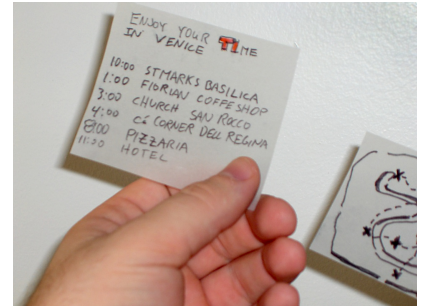 ENJOY YOUR TIME
IN VENICE
10:00 ST MARKS BASILICA
1:00 FLORIAN COFFE SHOP
3:00 CHURCH SAN ROCCO
4:00 Cá CORNER DELL REGINA
8:00 PIZZARIA
11:00 HOTEL